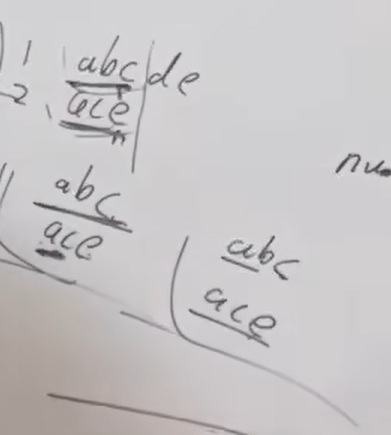 1 abc|de
2 ace
abc
ace
abc
ace